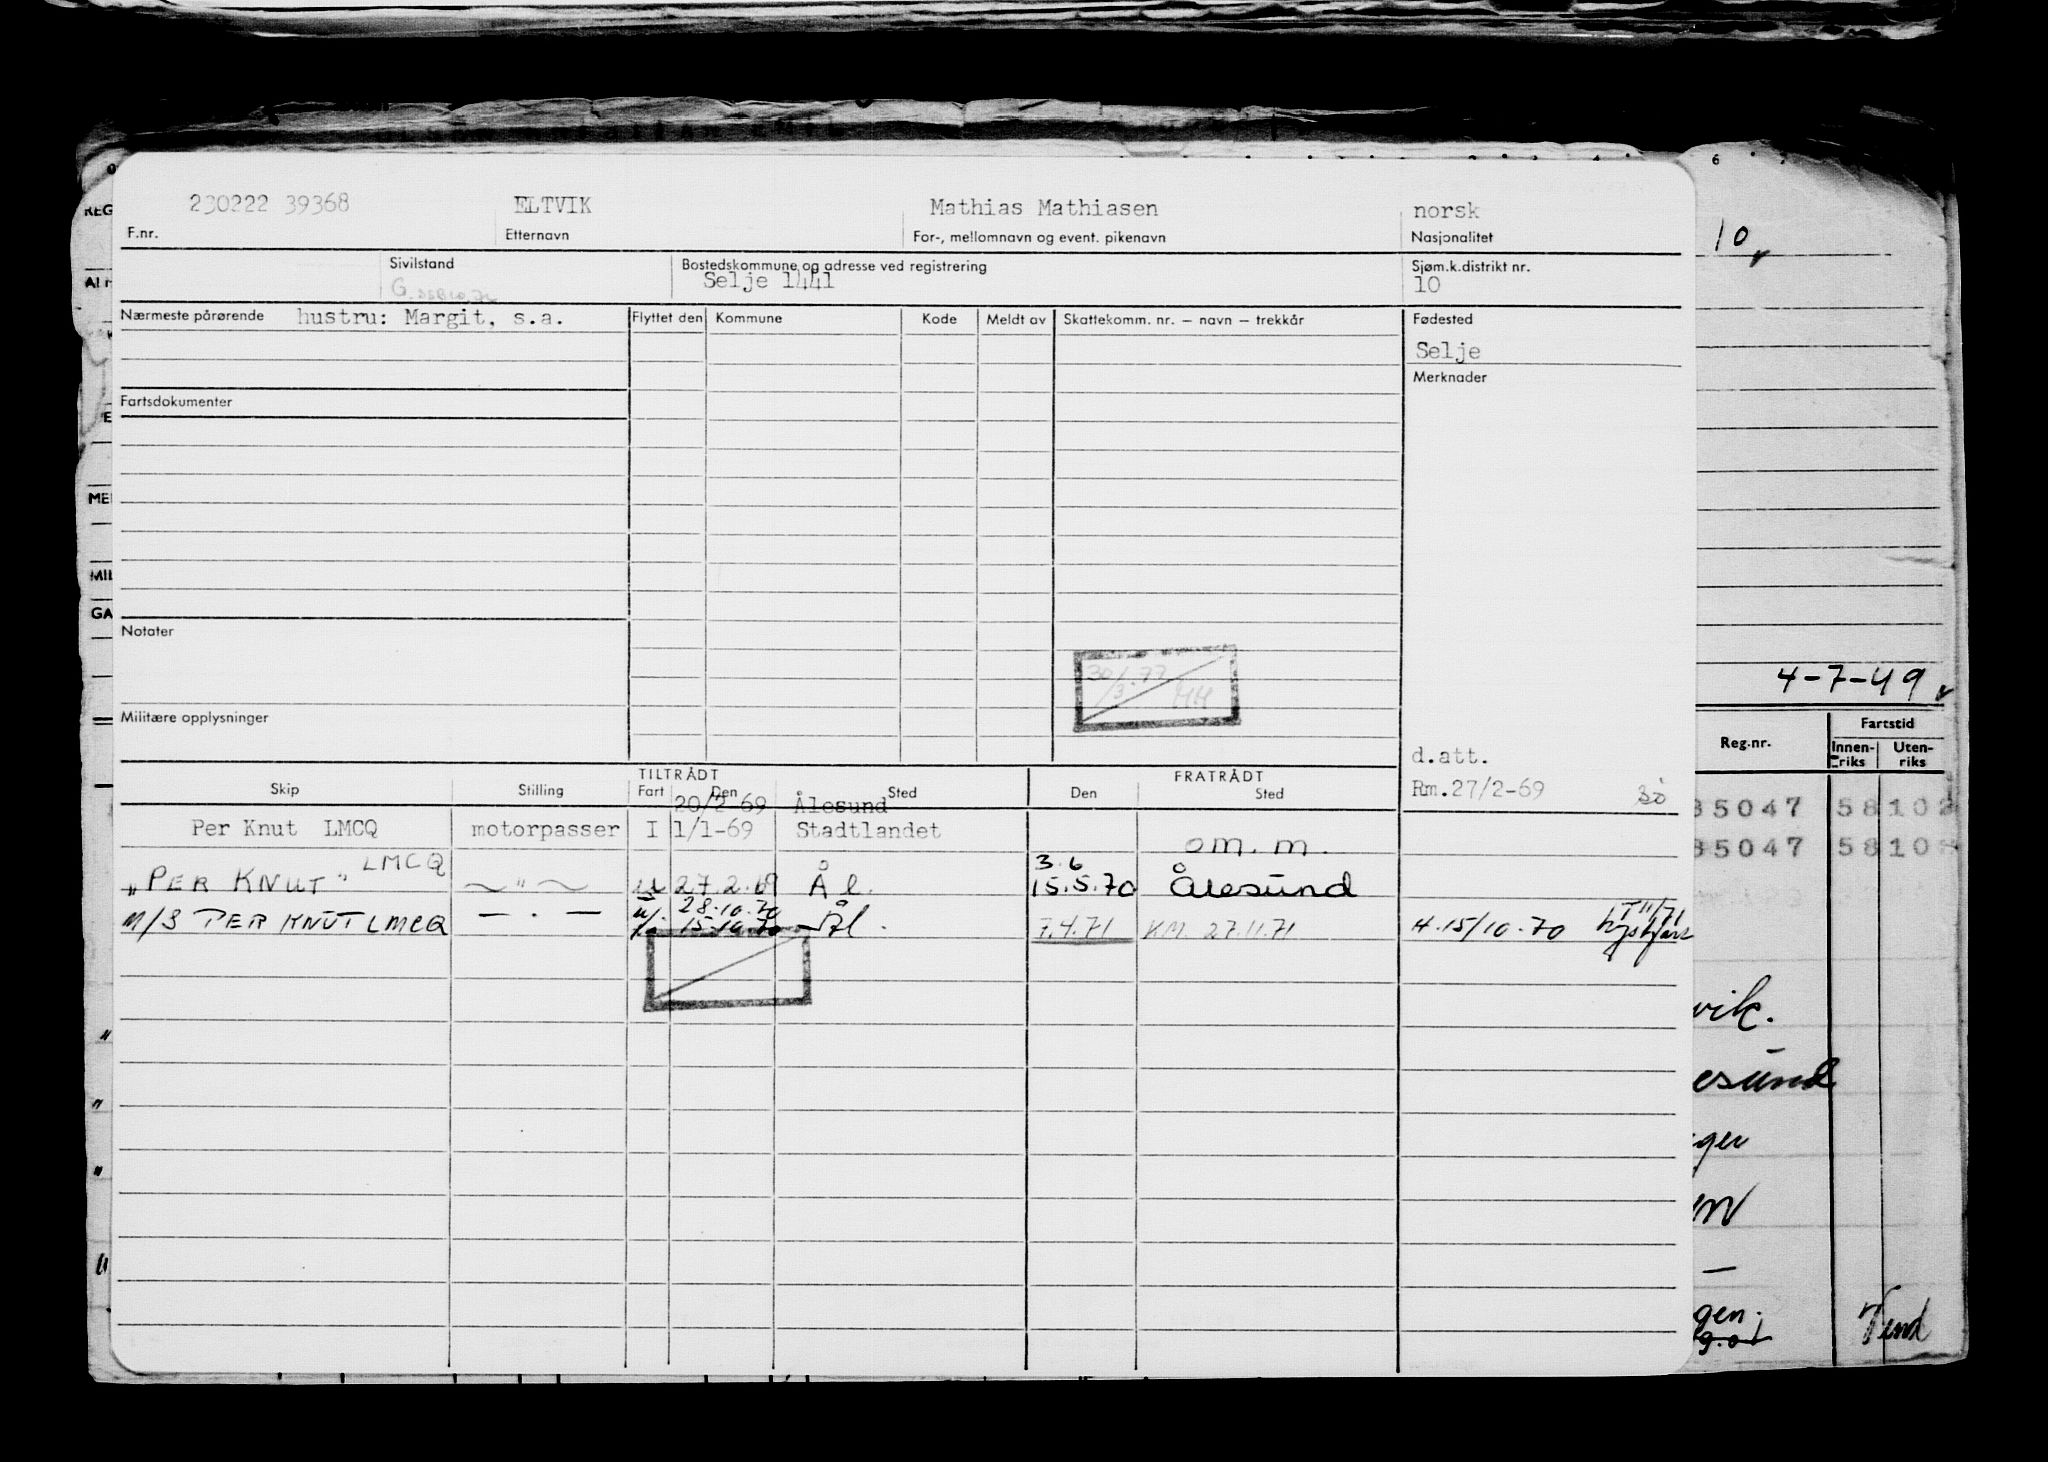 230222 39368 ELTVIK Mathias Mathiasen norsk
F.nr. Etternavn For-, mellomnavn og event. pikenavn Nasjonalitet
Sivilstand Bostedskommune og adresse ved registrering Sjøm.k.distrikt nr.
G. Selje 1441 10
Nærmeste pårørende hustru: Margit, s.a. Flyttet den Kommune Kode Meldt av Skattekomm. nr. — navn — trekkår Fødested
Selje
Merknader
Fartsdokumenter
Notater
30/3.77 HH
Militære opplysninger
d.att.
Rm.27/2-69
TILTRÅDT FRATRÅDT
Skip Stilling Fart Den Sted Den Sted
20/2-69 Ålesund
Per Knut LMCQ motorpasser I 1/1-69 Stadtlandet
om.m.
"PER KNUT" LMCQ — " — 27.2.69 Ål. 3.6
15.5.70 Ålesund
28.10.70
M/S PER KNUT LMCQ — . — 15.10.70 Ål. 7.4.71 KM. 27.11.71 4.15/10.70
REG
ME
MIL
GA
6
10
4-7-49
Reg.nr. Fartstid
Innen-riks Uten-riks
35047 58 10
35047 58 10
vik.
esund
ger
en
—
gen.
Vend